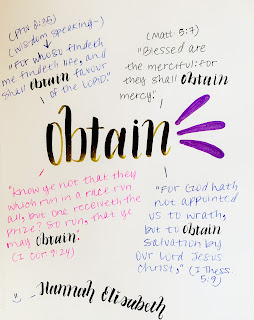 (Prov 8:35)
(wisdom speaking-)
"For whoso findeth
me findeth life, and
shall obtain favour
of the LORD."
(Matt. 5:7)
"Blessed are
the merciful: for
they shall obtain
mercy."
Obtain
"Know ye not that they
which run in a race run
all, but one receiveth the
prize? So run, that ye
may obtain."
(I Cor. 9:24)
"For God hath
not appointed
us to wrath,
but to obtain
salvation by
our Lord Jesus
Christ," (I Thess.
5:9)
:) -Hannah Elisabeth